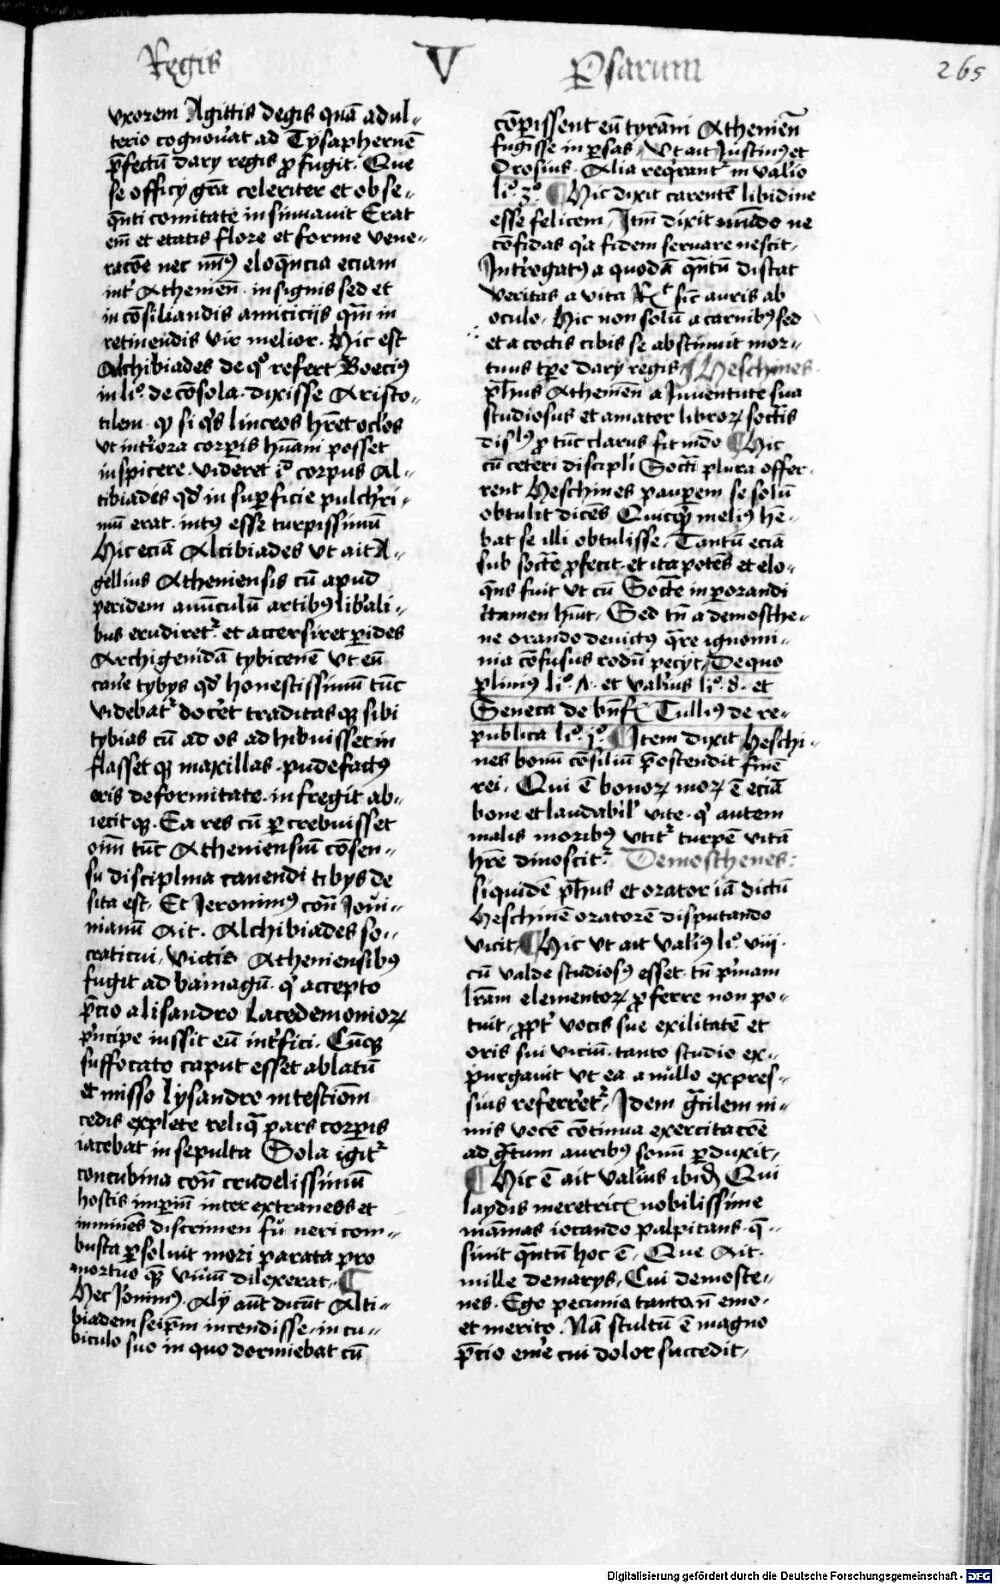 Regis V Persarum 265
vxorem Agittis degis quā adul-
terio cognov̓at ad Tysaphernē
p̄fectū dary regis ꝓfugit. Que
se officy gr̄a celeriter et obse-
qn̄ti comitate insinuauit Erat
em̄ et etatis flore et forme vene-
racōe nec min9 eloq̄ncia eciam
int̓ Athenien̄. insignis sed et
in cōsiliandis amicicijs qm̄ in
retinendis vir melior. Hic est
Alchibiades de qͦ refert Boeciꝰ
in liͦ. de cōsola. dixisse Aristo-
tilem. ꝙ si qͥs linceos hr̄et oc̓los
vt int̓iora corꝑis huāni posset
inspicere. videret iͦ corpus Al-
tibiadis qd̓ in suꝑficie pulch̓ri-
mū erat. intꝰ esse turpissimū
Hic eciā Alcibiades vt ait A-
gellius Atheniensis cū apud
peridem auūculū artibꝰ lib̓ali-
bus erudiretᷣ. et accersiret ꝑides
Archigenidā tybicenē vt eū
can̓e tybys qd̓ honestissimū tūc
videbatᷣ doc̓et traditasqꝫ sibi
tybias cū ad os adhibuisset in
flassetqꝫ maxillas. pudefactꝰ
oris deformitate. infregit ab-
iecitqꝫ. Ea res cū ꝑcrebuisset
oīm tūc Atheniensiū cōsen-
su disciplina canendi tibys de
sita est. Et Jeronimꝰ con̄ Joui-
nianū Ait. Alchibiades so-
craticus, victis Atheniensibꝰ
fugit ad bamagū. qͥ accepto
p̄cio a lisandro Lacedemonioꝝ
pͥncipe iussit eū int̓fici. Cūqꝫ
suffocato caput esset ablatū
et misso lysandro in testiom̄
cedis explete reliqͣ pars corꝑis
iacebat insepulta Sola igitᷣ
concubina con̄ crudelissimū
hostis imꝑiū inter extraneos et
imminēs discrimen fun̓i neri com-
busta ꝑsoluit mori parata pro
mortuo quē viuū dilexerat.
Hec Jͦonimꝰ. Aly aūt dicūt Alti-
biadem seip̄m incendisse. in cu-
biculo suo in quo dormiebat cū
cōꝑissent eū tyrāni Athenien̄
fugisse in ꝑsas, vt ait Justinꝰ et
Orosius. Alia req̓rantᷣ in val̓io
liͦ. 3ͦ. Hic dixit carentē libidine
esse felicem, Itm̄ dixit mūdo ne
cōfidas qͥa fidem seruare nescit,
Int̓rogatꝰ a quodā qn̄tū distat
veritas a vita Rt sic̄ auris ab
oculo. Hic non solū a carnibꝰ sed
et a coctis cibis se abstinuit mor-
tuus tꝑe dary regis Heschines
ph̄us Athenien̄ a Juuentute sua
studiosus et amator libroꝝ socr̄tis
dislꝰ ꝓ tūc clarus fit mūdo Hic
cū ceteri discipli Socr̄ti plura offer-
rent Heschines pauꝑem se solū
obtulit dicēs Quicqͥd melꝰ hē-
bat se illi obtulisse. Tantū eciā
sub socr̄te ꝓfecit. et ita potēs et elo-
qn̄s fuit vt cū Socr̄te in ꝑorandi
c̓tamen hūit. Sed tn̄ a demosthe-
ne orando deuictꝰ qͣre ignomi-
nia cōfusus rodū pecyt, De quo
plinius liͦ. A. et val̓ius liͦ. 8. et
Seneca de bn̄f. Tulliꝰ de re-
publica liͦ. jͦ. Item dixit Heschi-
nes bonū cōsiliū p̄ostendit finē
rei. Qui ē bonoꝝ moꝝ ē eciā
bone et laudabil̓ vite. qͥ autem
malis moribꝰ vtitᷣ turpē vitā
hr̄e dinoscitᷣ. Demosthenes:
siquidē ph̄us et orator iā dictū
Heschinē oratorē disputando
vicit. Hic vt ait val̓iꝰ liͦ. viij.
cū valde studiosꝰ esset. tn̄ pͥmam
lr̄am elementoꝝ ꝓferre non po-
tuit. ꝓpt̓ vocis sue exilitatē et
oris sui viciū. tanto studio ex-
purgauit vt ea a nullo expres-
sius referretᷣ. Idem gͣcilem ni-
mis vocē cōtinua exercitacōe
ad gͣtum auribꝰ sonū ꝑduxit,
Hic ē ait val̓ius ibid̄. Qui
laydis meretric̄ nobilissime
māmas iocando palpitans. q̄-
siuit qn̄tū hoc ē. Que Ait.
mille denarys, Cui demoste-
nes. Ego pecunia tanta n̄ emo.
et merito. Nā stultū ē magno
p̄cio em̓e cui dolor succedit,
Digitalisierung gefördert durch die Deutsche Forschungsgemeinschaft - DFG